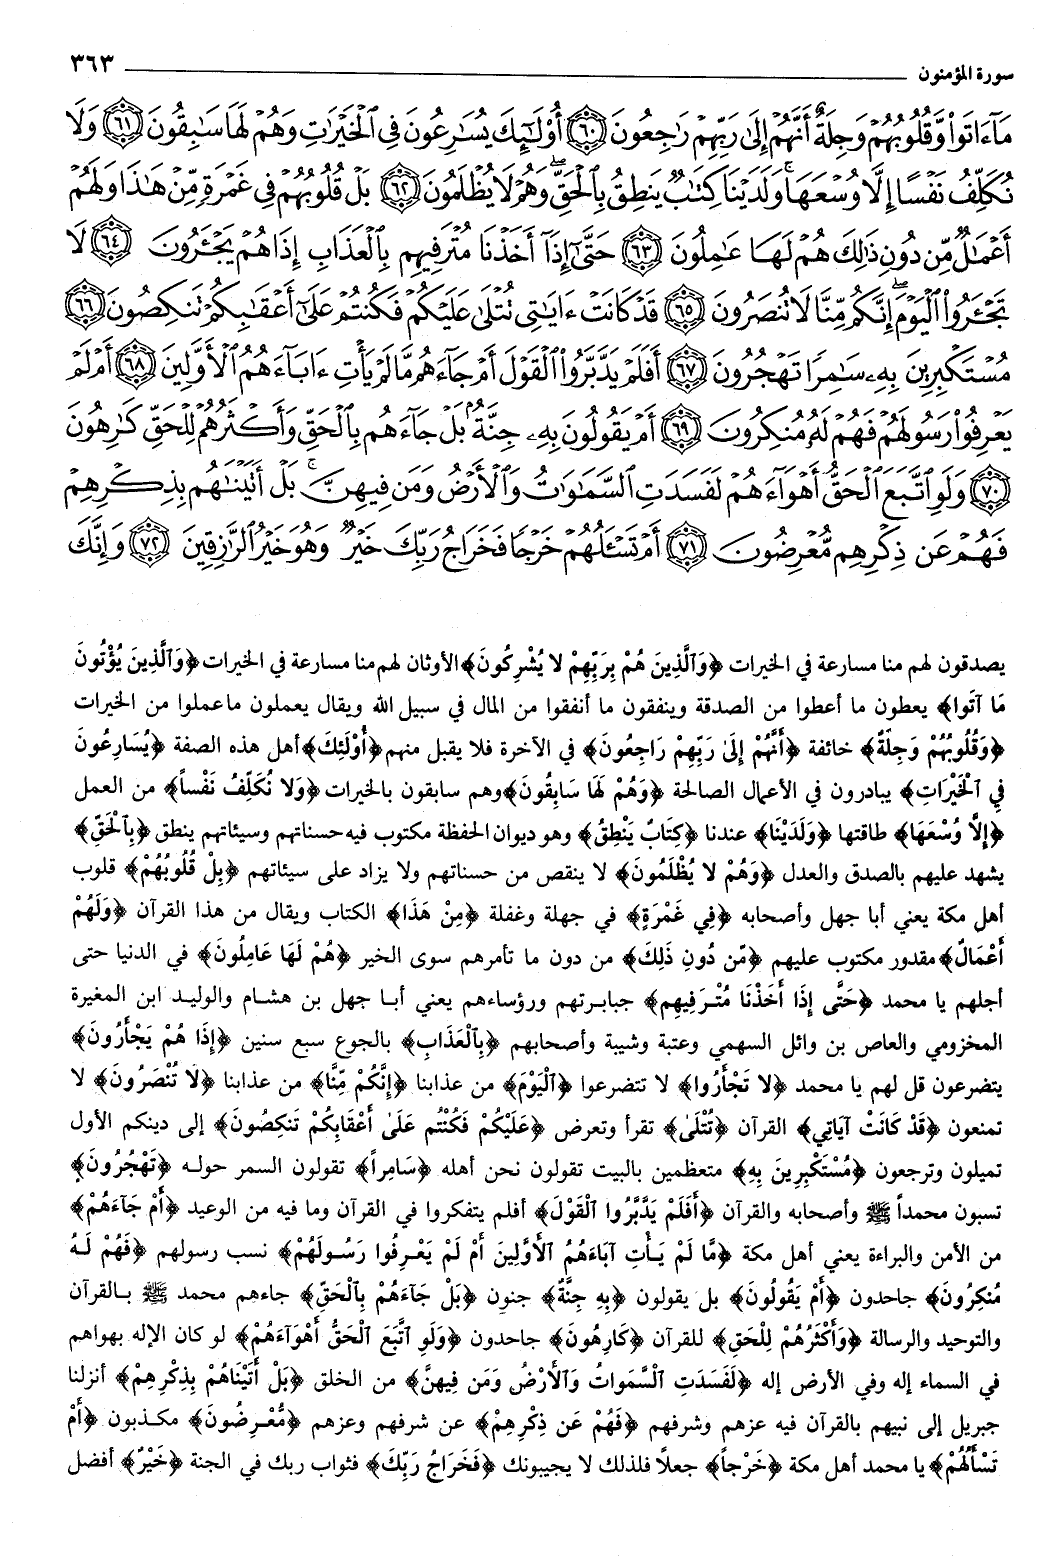 سورة المؤمنون ٣٦٣
مَآءَاتَوا۟ وَّقُلُوبُهُمْ وَجِلَةٌ أَنَّهُمْ إِلَىٰ رَبِّهِمْ رَٰجِعُونَ ٦٠ أُو۟لَٰٓئِكَ يُسَٰرِعُونَ فِى ٱلْخَيْرَٰتِ وَهُمْ لَهَا سَٰبِقُونَ ٦١ وَلَا
نُكَلِّفُ نَفْسًا إِلَّا وُسْعَهَا ۚ وَلَدَيْنَا كِتَٰبٌ يَنطِقُ بِٱلْحَقِّ ۖ وَهُمْ لَا يُظْلَمُونَ ٦٢ بَلْ قُلُوبُهُمْ فِى غَمْرَةٍ مِّنْ هَٰذَا وَلَهُمْ
أَعْمَٰلٌ مِّن دُونِ ذَٰلِكَ هُمْ لَهَا عَٰمِلُونَ ٦٣ حَتَّىٰٓ إِذَآ أَخَذْنَا مُتْرَفِيهِم بِٱلْعَذَابِ إِذَا هُمْ يَجْـَٔرُونَ ٦٤ لَا
تَجْـَٔرُوا۟ ٱلْيَوْمَ ۖ إِنَّكُم مِّنَّا لَا تُنصَرُونَ ٦٥ قَدْ كَانَتْ ءَايَٰتِى تُتْلَىٰ عَلَيْكُمْ فَكُنتُمْ عَلَىٰٓ أَعْقَٰبِكُمْ تَنكِصُونَ ٦٦
مُسْتَكْبِرِينَ بِهِۦ سَٰمِرًا تَهْجُرُونَ ٦٧ أَفَلَمْ يَدَّبَّرُوا۟ ٱلْقَوْلَ أَمْ جَآءَهُم مَّا لَمْ يَأْتِ ءَابَآءَهُمُ ٱلْأَوَّلِينَ ٦٨ أَمْ لَمْ
يَعْرِفُوا۟ رَسُولَهُمْ فَهُمْ لَهُۥ مُنكِرُونَ ٦٩ أَمْ يَقُولُونَ بِهِۦ جِنَّةٌۢ ۚ بَلْ جَآءَهُم بِٱلْحَقِّ وَأَكْثَرُهُمْ لِلْحَقِّ كَٰرِهُونَ
٧٠ وَلَوِ ٱتَّبَعَ ٱلْحَقُّ أَهْوَآءَهُمْ لَفَسَدَتِ ٱلسَّمَٰوَٰتُ وَٱلْأَرْضُ وَمَن فِيهِنَّ ۚ بَلْ أَتَيْنَٰهُم بِذِكْرِهِمْ
فَهُمْ عَن ذِكْرِهِم مُّعْرِضُونَ ٧١ أَمْ تَسْـَٔلُهُمْ خَرْجًا فَخَرَاجُ رَبِّكَ خَيْرٌ ۖ وَهُوَ خَيْرُ ٱلرَّٰزِقِينَ ٧٢ وَإِنَّكَ
يصدقون لهم منا مسارعة في الخيرات ﴿وَٱلَّذِينَ هُمْ بِرَبِّهِمْ لا يُشْرِكُونَ﴾الأوثان لهم منا مسارعة في الخيرات﴿وَٱلَّذِينَ يُؤْتُونَ
مَا آتَوا﴾ يعطون ما أعطوا من الصدقة وينفقون ما أنفقوا من المال في سبيل الله ويقال يعملون ماعملوا من الخيرات
﴿وَقُلُوبُهُمْ وَجِلَةٌ﴾ خائفة ﴿أَنَّهُمْ إِلَىٰ رَبِّهِمْ رَاجِعُونَ﴾ في الآخرة فلا يقبل منهم﴿أُوْلَئِكَ﴾أهل هذه الصفة ﴿يُسَارِعُونَ
فِي ٱلْخَيْرَاتِ﴾ يبادرون في الأعمال الصالحة ﴿وَهُمْ لَهَا سَابِقُونَ﴾وهم سابقون بالخيرات﴿وَلا نُكَلِّفُ نَفْساً﴾ من العمل
﴿إِلَّا وُسْعَهَا﴾ طاقتها ﴿وَلَدَيْنَا﴾ عندنا ﴿كِتَابٌ يَنْطِقُ﴾ وهو ديوان الحفظة مكتوب فيه حسناتهم وسيئاتهم ينطق ﴿بِٱلْحَقِّ﴾
يشهد عليهم بالصدق والعدل ﴿وَهُمْ لا يُظْلَمُونَ﴾ لا ينقص من حسناتهم ولا يزاد على سيئاتهم ﴿بلْ قُلُوبُهُمْ﴾ قلوب
أهل مكة يعني أبا جهل وأصحابه ﴿فِي غَمْرَةٍ﴾ في جهلة وغفلة ﴿مِنْ هَذَا﴾ الكتاب ويقال من هذا القرآن ﴿وَلَهُمْ
أَعْمَالٌ﴾مقدور مكتوب عليهم ﴿مّن دُونِ ذَلِكَ﴾ من دون ما تأمرهم سوى الخير ﴿هُمْ لَهَا عَامِلُونَ﴾ في الدنيا حتى
أجلهم يا محمد ﴿حَتَّى إِذَا أَخَذْنَا مُتْرَفِيهِم﴾ جبابرتهم ورؤساءهم يعني أبا جهل بن هشام والوليد ابن المغيرة
المخزومي والعاص بن وائل السهمي وعتبة وشيبة وأصحابهم ﴿بِٱلْعَذَابِ﴾ بالجوع سبع سنين ﴿إِذَا هُمْ يَجْأَرُونَ﴾
يتضرعون قل لهم يا محمد ﴿لا تَجْأَرُوا﴾ لا تتضرعوا ﴿ٱلْيَوْمَ﴾ من عذابنا ﴿إِنَّكُمْ مِّنَّا﴾ من عذابنا ﴿لَا تُنْصَرُونَ﴾ لا
تمنعون ﴿قَدْ كَانَتْ آيَاتِي﴾ القرآن ﴿تُتْلَىٰ﴾ تقرأ وتعرض ﴿عَلَيْكُمْ فَكُنْتُم عَلَىٰ أَعْقَابِكُمْ تَنكِصُونَ﴾ إلى دينكم الأول
تميلون وترجعون ﴿مُسْتَكْبِرِينَ بِهِ﴾ متعظمين بالبيت تقولون نحن أهله ﴿سَامِراً﴾ تقولون السمر حوله ﴿تَهْجُرُونَ﴾
تسبون محمداً ﷺ وأصحابه والقرآن ﴿أَفَلَمْ يَدَّبَّرُوا ٱلْقَوْلَ﴾ أفلم يتفكروا في القرآن وما فيه من الوعيد ﴿أَمْ جَآءَهُمْ﴾
من الأمن والبراءة يعني أهل مكة ﴿مَّا لَمْ يَأْتِ آبَاءَهُمُ ٱلأَوَّلِينَ أَمْ لَمْ يَعْرِفُوا رَسُولَهُمْ﴾ نسب رسولهم ﴿فَهُمْ لَهُ
مُنكِرُونَ﴾ جاحدون ﴿أَمْ يَقُولُونَ﴾ بل يقولون ﴿بِهِ جِنَّةٌ﴾ جنون ﴿بَلْ جَآءَهُمْ بِٱلْحَقِّ﴾ جاءهم محمد ﷺ بالقرآن
والتوحيد والرسالة ﴿وَأَكْثَرُهُمْ لِلْحَقِ﴾ للقرآن ﴿كَارِهُونَ﴾ جاحدون ﴿وَلَوِ ٱتَّبَعَ ٱلْحَقُّ أَهْوَآءَهُمْ﴾ لو كان الإله بهواهم
في السماء إله وفي الأرض إله ﴿لَفَسَدَتِ ٱلْسَّمَوَاتُ وَٱلأَرْضُ وَمَن فِيهِنَّ﴾ من الخلق ﴿بَلْ أَتَيْنَاهُمْ بِذِكْرِهِمْ﴾ أنزلنا
جبريل إلى نبيهم بالقرآن فيه عزهم وشرفهم ﴿فَهُمْ عَن ذِكْرِهِمْ﴾ عن شرفهم وعزهم ﴿مُّعْرِضُونَ﴾ مكذبون ﴿أَمْ
تَسْأَلُهُمْ﴾ يا محمد أهل مكة ﴿خَرْجاً﴾ جعلاً فلذلك لا يجيبونك ﴿فَخَرَاجُ رَبِّكَ﴾ فثواب ربك في الجنة ﴿خَيْرٌ﴾ أفضل